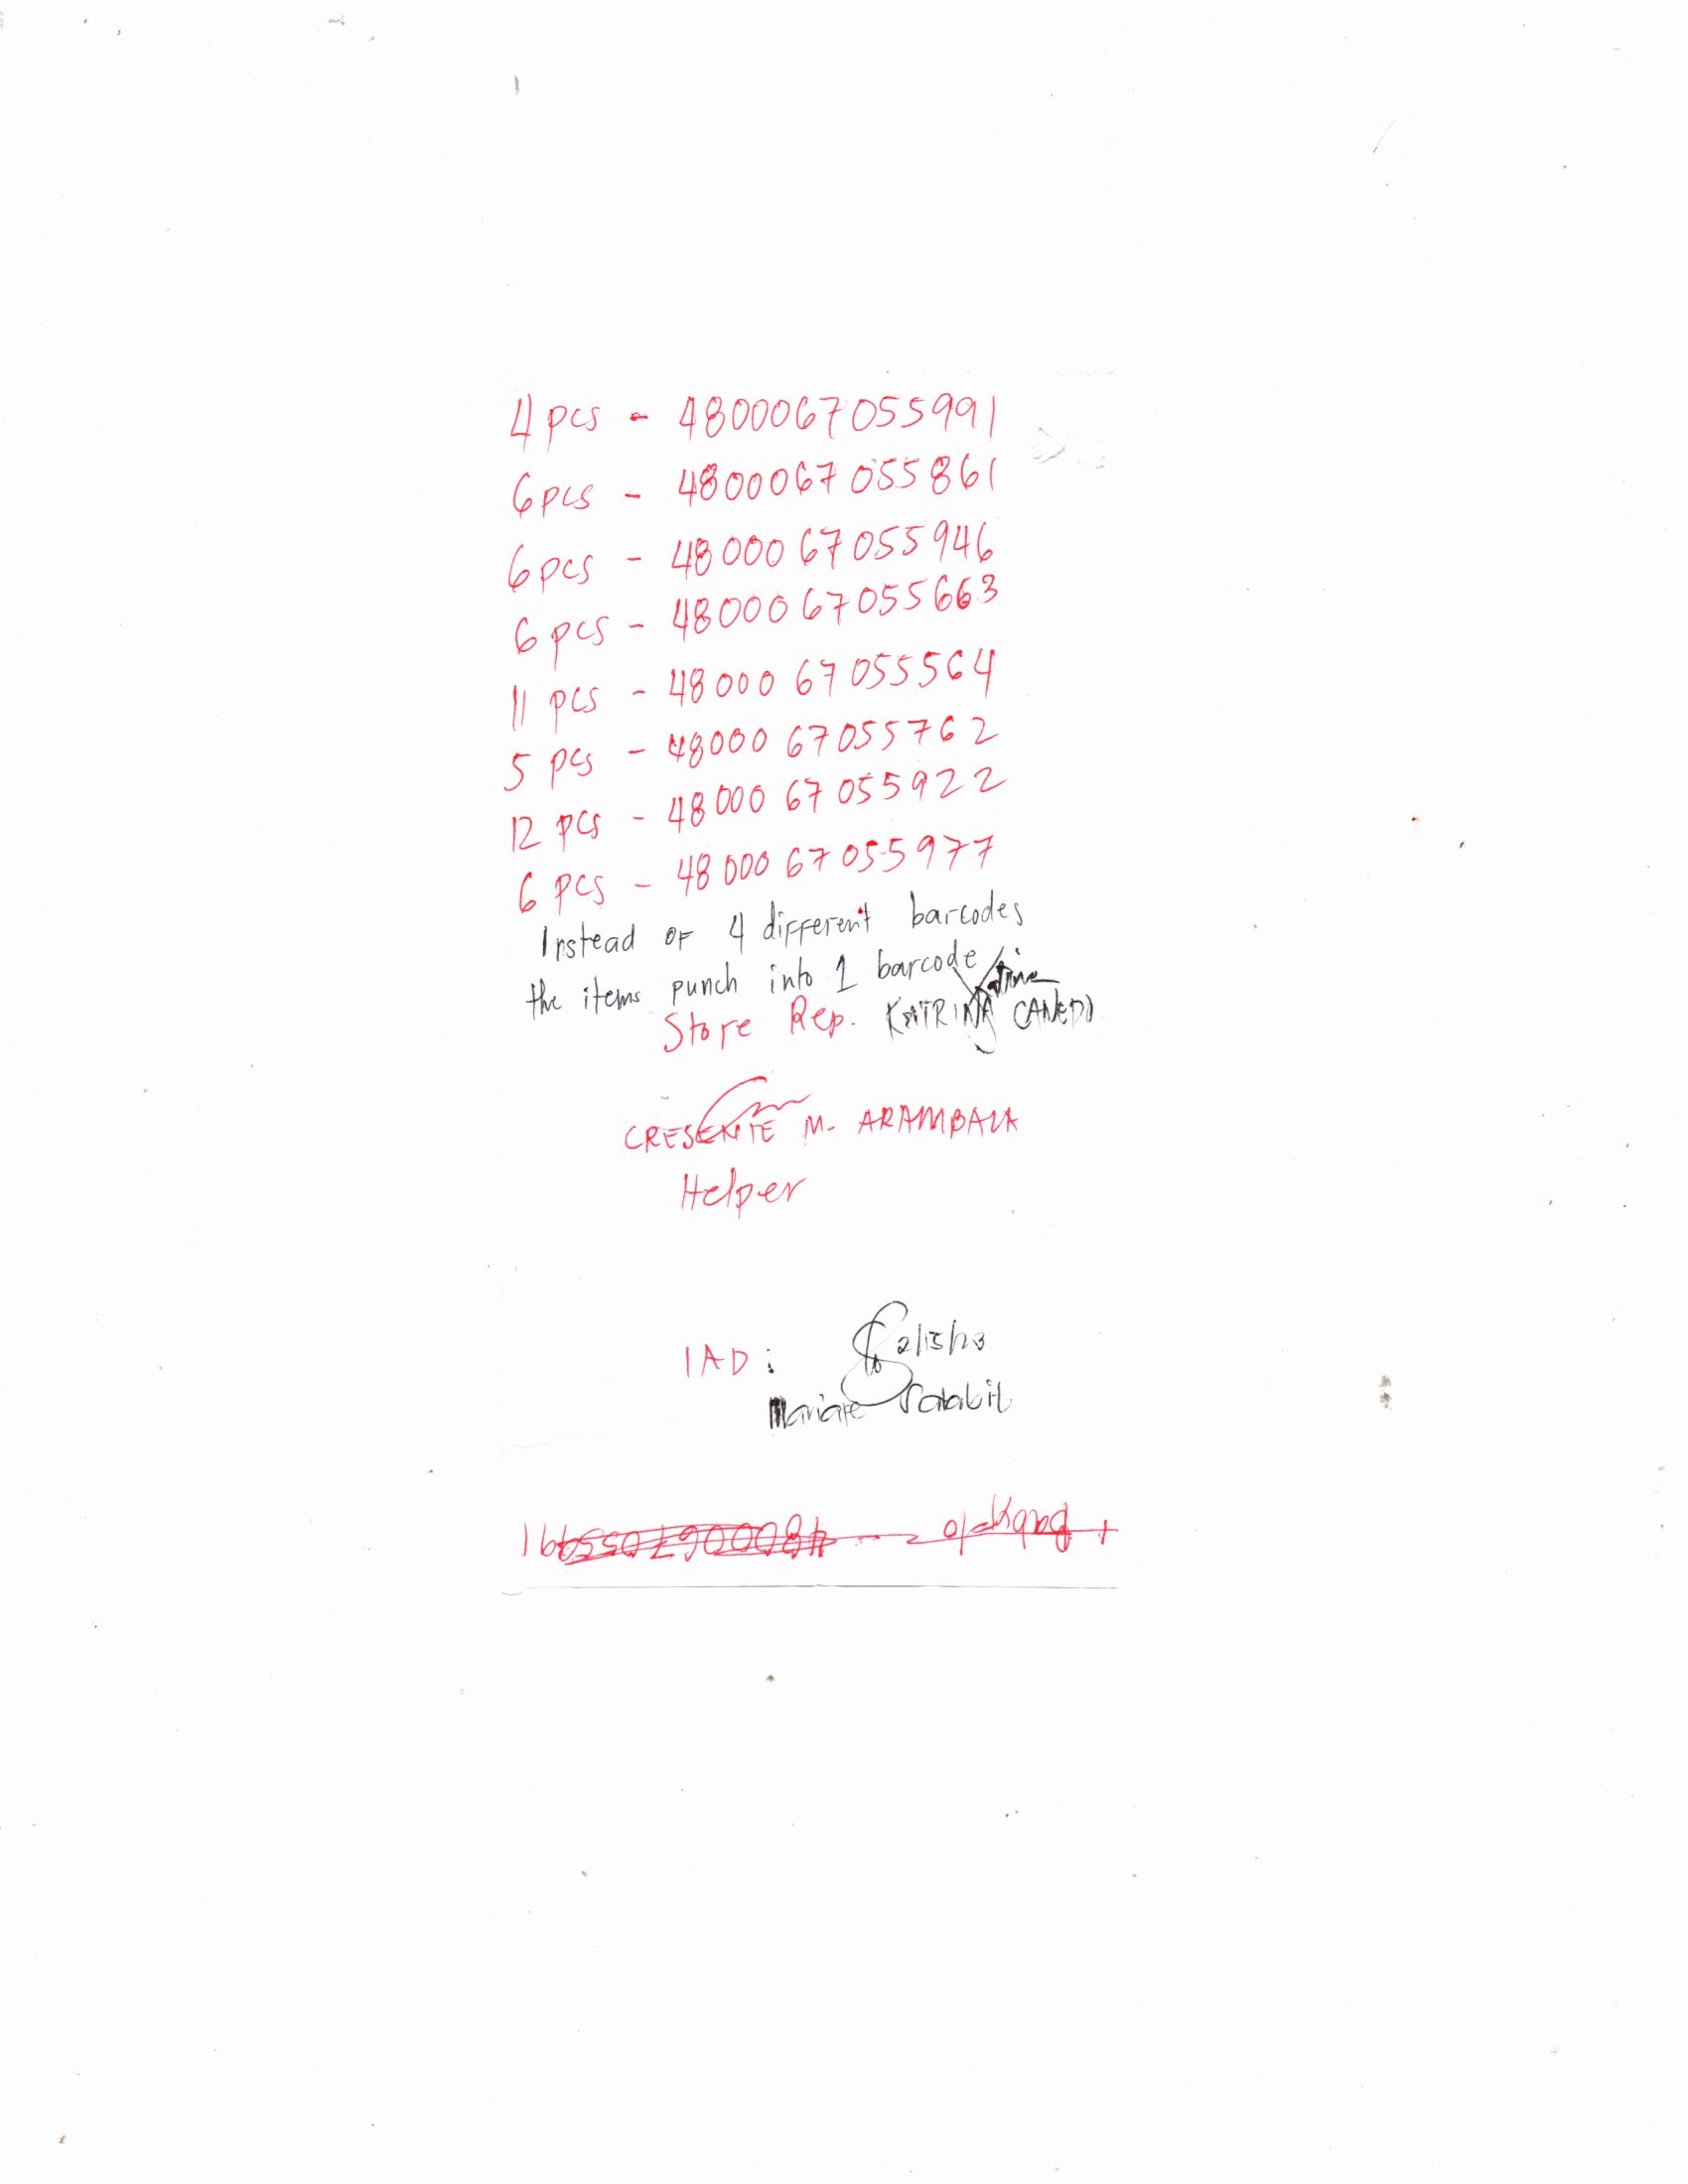 4 pcs - 4800067055991
6 pcs - 4800067055861
6 pcs - 4800067055946
6 pcs - 4800067055663
11 pcs - 4800067055564
5 pcs - 4800067055762
12 pcs - 4800067055922
6 pcs - 4800067055977
Instead OF 4 different barcodes
the items punch into 1 barcode
Store Rep. KATRINA CANEDO
CRESENTE M. ARAMBALA
Helper
IAD: